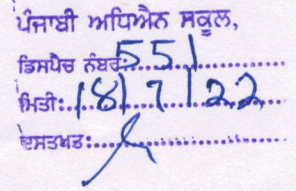 ਪੰਜਾਬੀ ਅਧਿਐਨ ਸਕੂਲ,
ਡਿਸਪੈਚ ਨੰਬਰ:551
ਮਿਤੀ:18/7/22
ਦਸਤਖਤ: